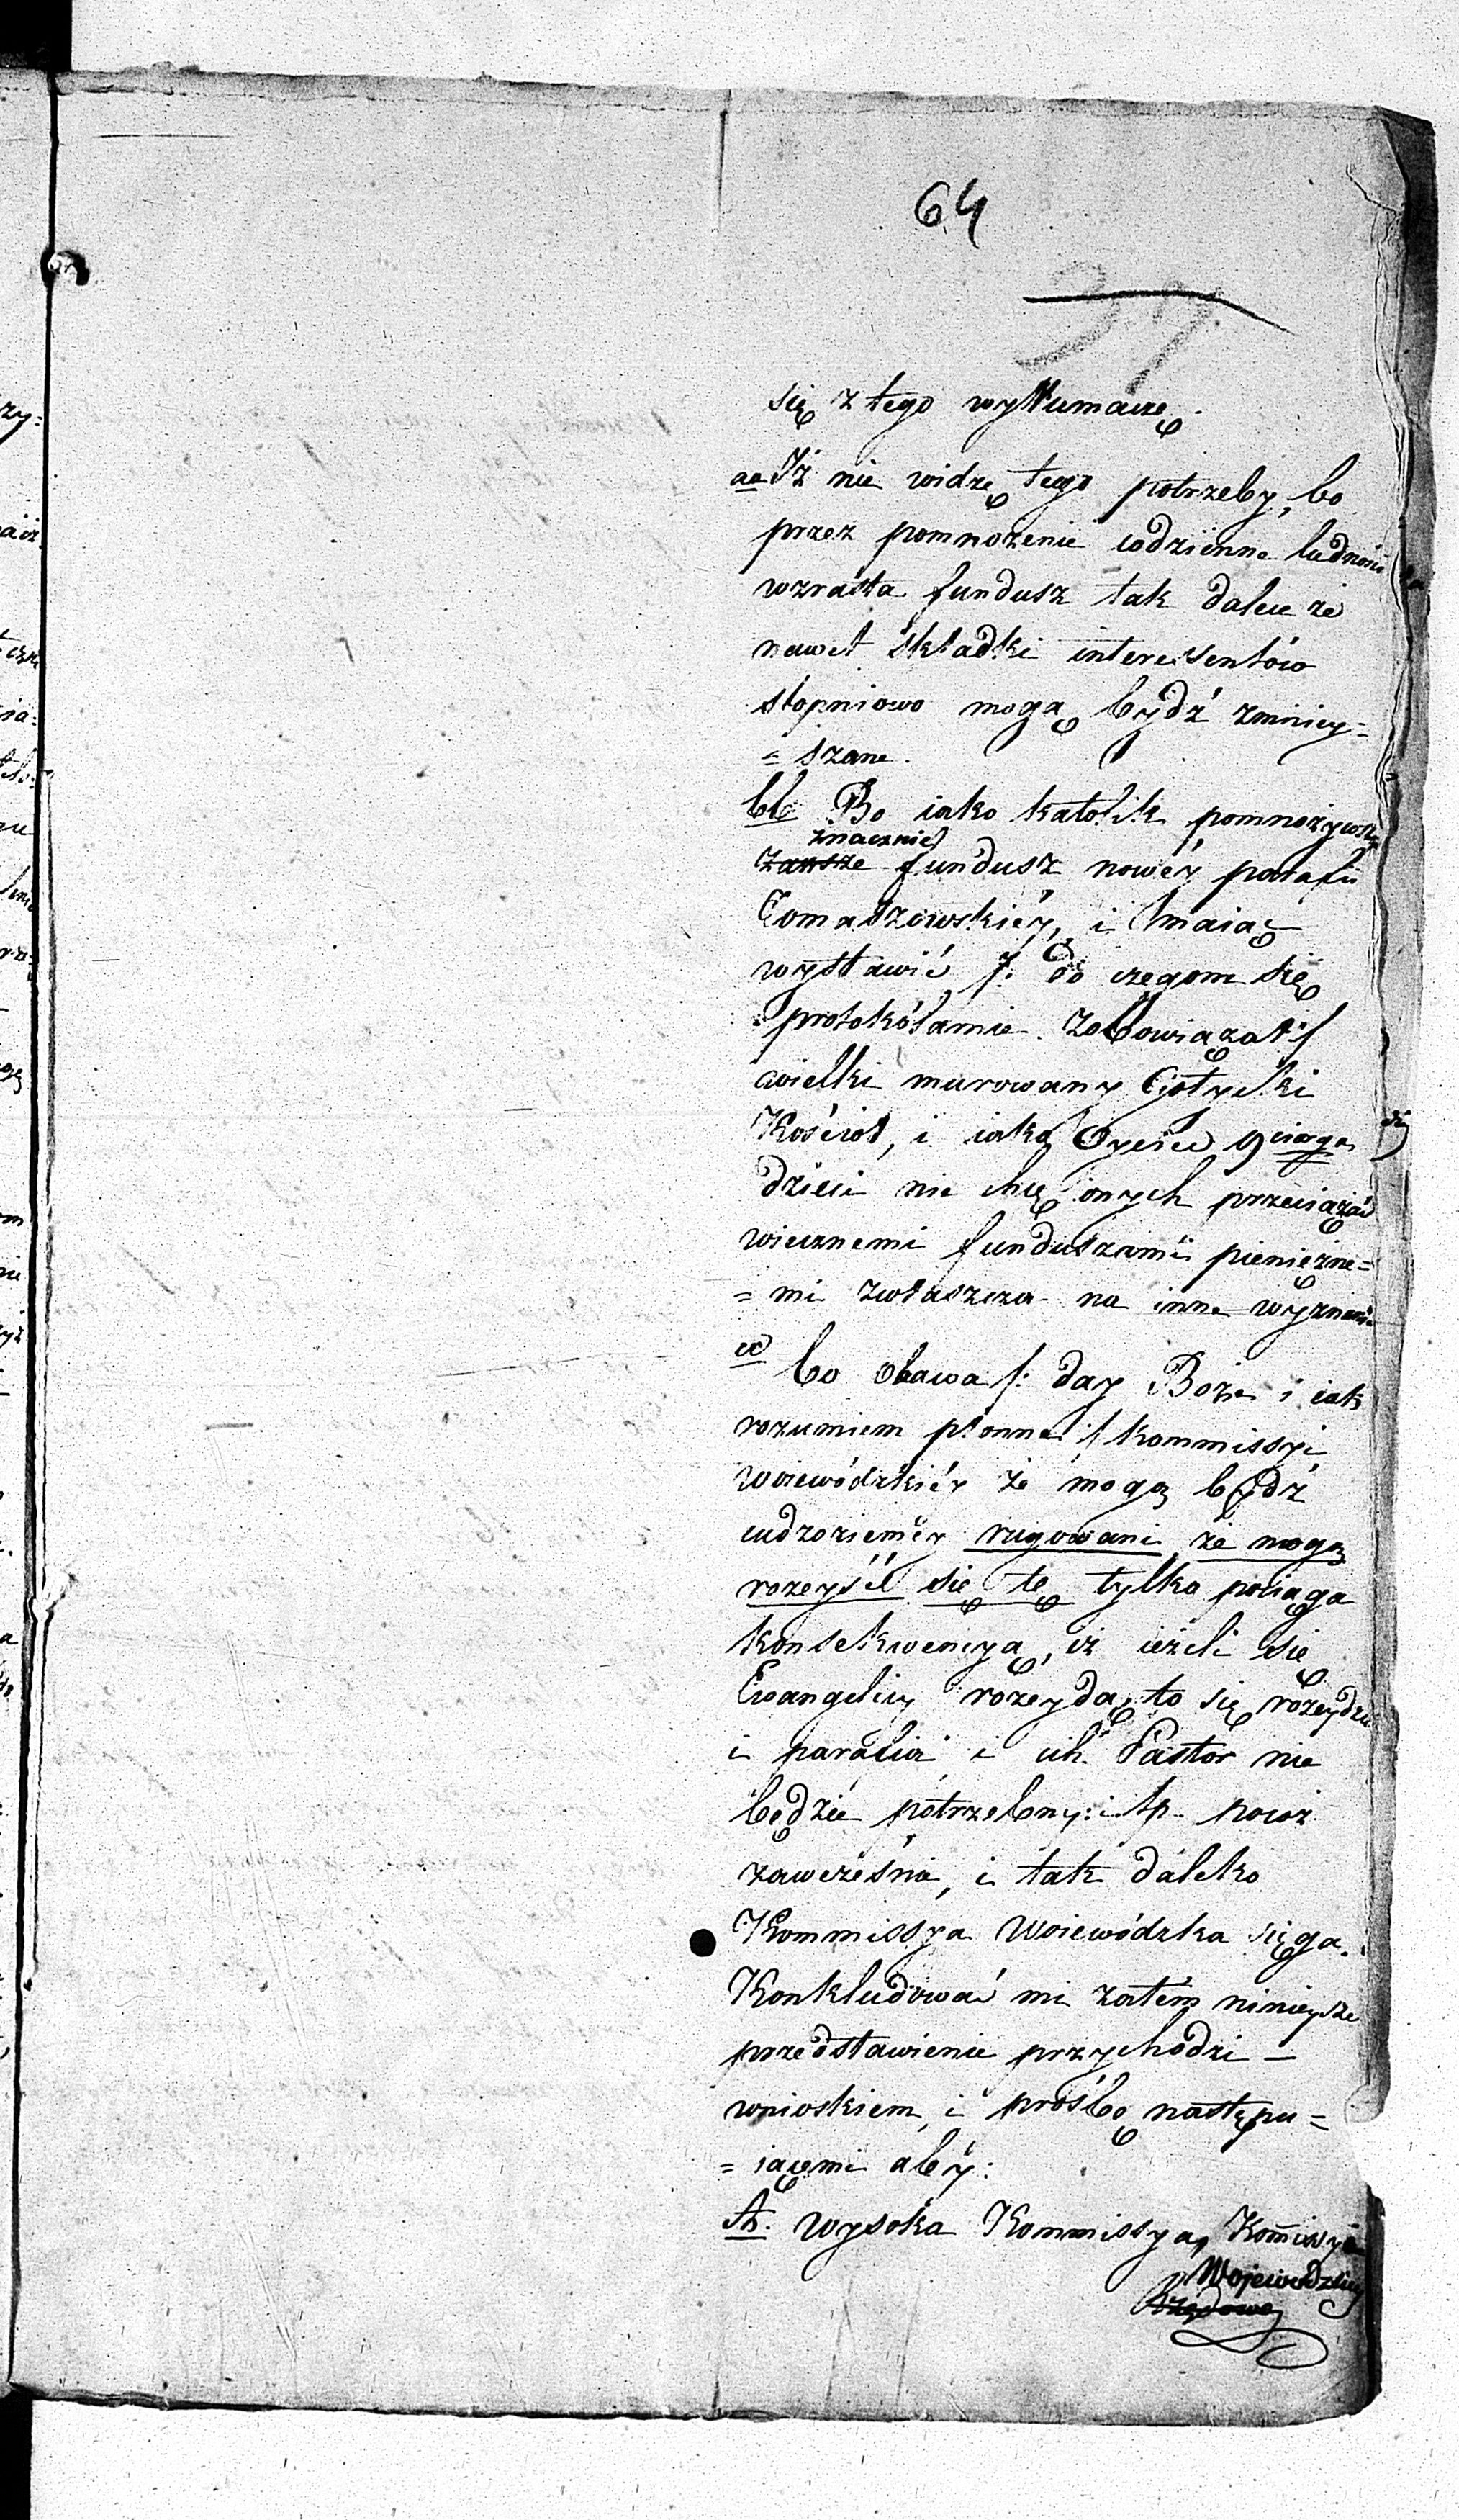 64
37
się z tego wytłumaczę.
aa Iż nie widzę tego potrzeby, bo
przez pomnożenie codzienne ludności
wzrasta fundusz tak dalece że
nawet składki interessentów
stopniowo mogą bydź zmniey=
=szane.
bb Bo iako katolik pomnożywszy
znacznie
zawsze fundusz nowéy parafii
Tomaszowskiéy, i maiąc
wystawić /: do czegom się
protokólarnie zobowiązał :/
wielki murowany Gotycki
Kościoł, i iako Oyciec 9ciorga
dzieci nie chcę onych przeciążać
wiecznemi funduszami pienięzne=
=mi zwłaszcza na inne wyznanie
cc bo obawa /: day Boże i iak
rozumiem płonna :/ Kommissyi
Woiewódzkiéy że mogą bydź
cudzoziemcy rugowani że mogą
rozeyść się tę tylko pociąga
konsekwencyą, iż ieżeli się
Ewangelicy rozeydą, to się rozeydzie
i parafia i ich Pastor nie
będzie potrzebny: i tp.
zawcześnie, i tak daleko
Kommissya Woiewódzka sięga.
Konkludować mi zatém ninieysze
przedstawienie przychodzi —
wnioskiem, i proźbą następu=
=iącemi aby:
A. Wysoka Kommissya, Kom̃issyi
Wojewódzkiey
Rządowa